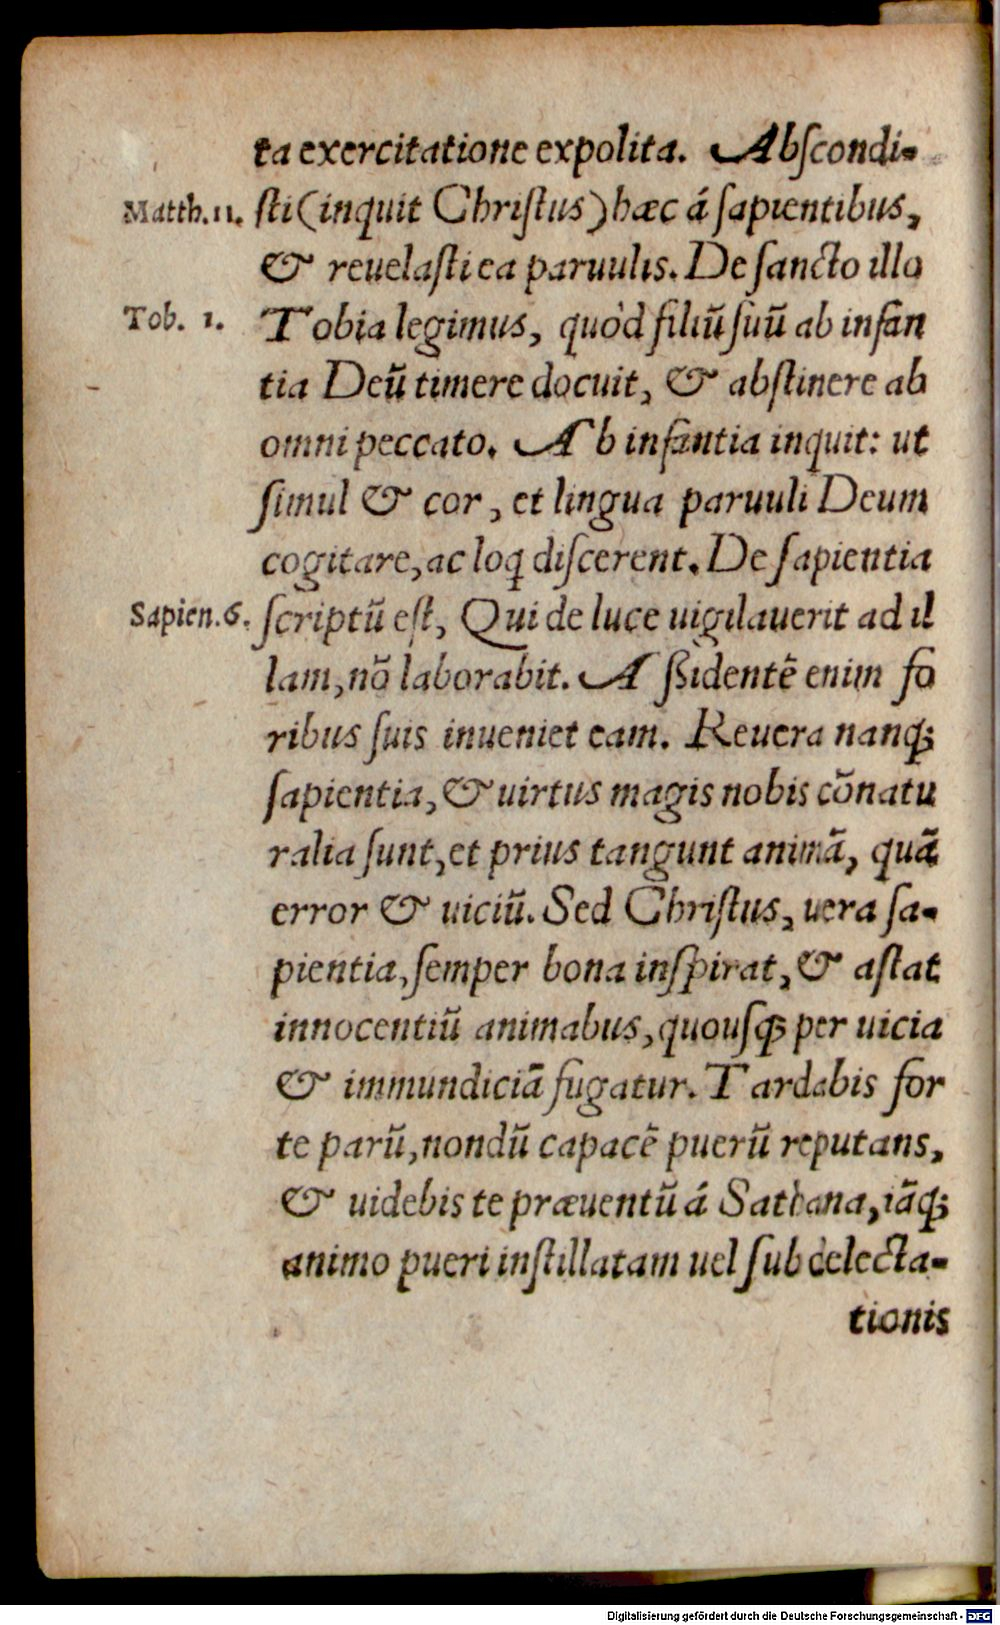 ta exercitatione expolita. Abſcondi-
Matth. 11. ſti (inquit Chriſtus) hæc á ſapientibus,
& reuelaſti ea paruulis. De ſancto illo
Tob. 1. Tobia legimus, quòd filiũ ſuũ ab infan
tia Deũ timere docuit, & abſtinere ab
omni peccato. Ab infantia inquit: ut
ſimul & cor, et lingua paruuli Deum
cogitare, ac loq̃ diſcerent. De ſapientia
Sapien. 6. ſcriptũ eſt, Qui de luce uigilauerit ad il
lam, nõ laborabit. Aſsidentẽ enim fo
ribus ſuis inueniet eam. Reuera nanq;
ſapientia, & uirtus magis nobis cõnatu
ralia ſunt, et prius tangunt animã, quã
error & uiciũ. Sed Chriſtus, uera ſa-
pientia, ſemper bona inſpirat, & aſtat
innocentiũ animabus, quouſq; per uicia
& immundiciã fugatur. Tardabis for
te parũ, nondũ capacẽ puerũ reputans,
& uidebis te præuentũ á Sathana, iãq;
animo pueri inſtillatam uel ſub delecta-
tionis
Digitalisierung gefördert durch die Deutsche Forschungsgemeinschaft - DFG